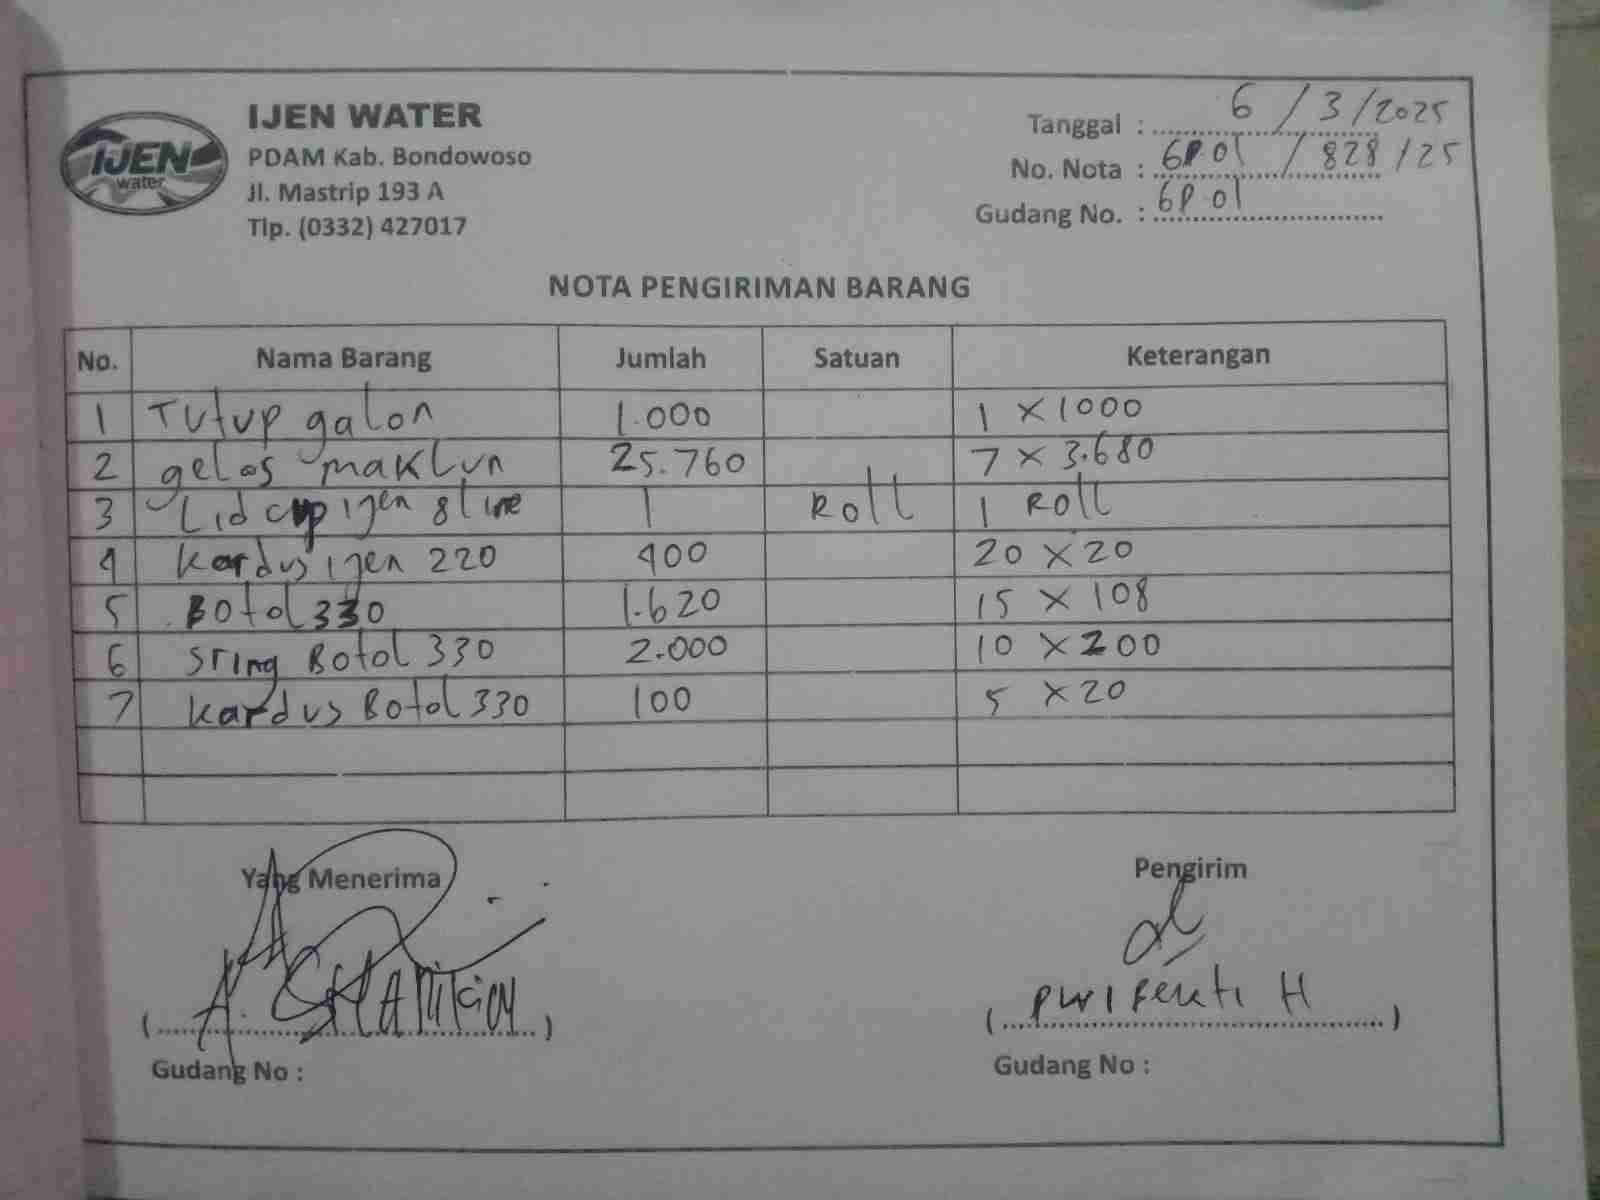 IJEN
water
IJEN WATER
PDAM Kab. Bondowoso
Jl. Mastrip 193 A
Tlp. (0332) 427017
Tanggal : 6 / 3 / 2025
No. Nota : GP.01 / 828 / 25
Gudang No. : GP.01
NOTA PENGIRIMAN BARANG
No. Nama Barang Jumlah Satuan Keterangan
1 Tutup galon 1.000 1 x 1000
2 gelas maklun 25.760 7 x 3.680
3 Lid cup ijen 8 line 1 Roll 1 Roll
4 Kardus ijen 220 400 20 x 20
5 Botol 330 1.620 15 x 108
6 Sring Botol 330 2.000 10 x 200
7 Kardus Botol 330 100 5 x 20
Yang Menerima
(A.)
Gudang No :
Pengirim
(H)
Gudang No :